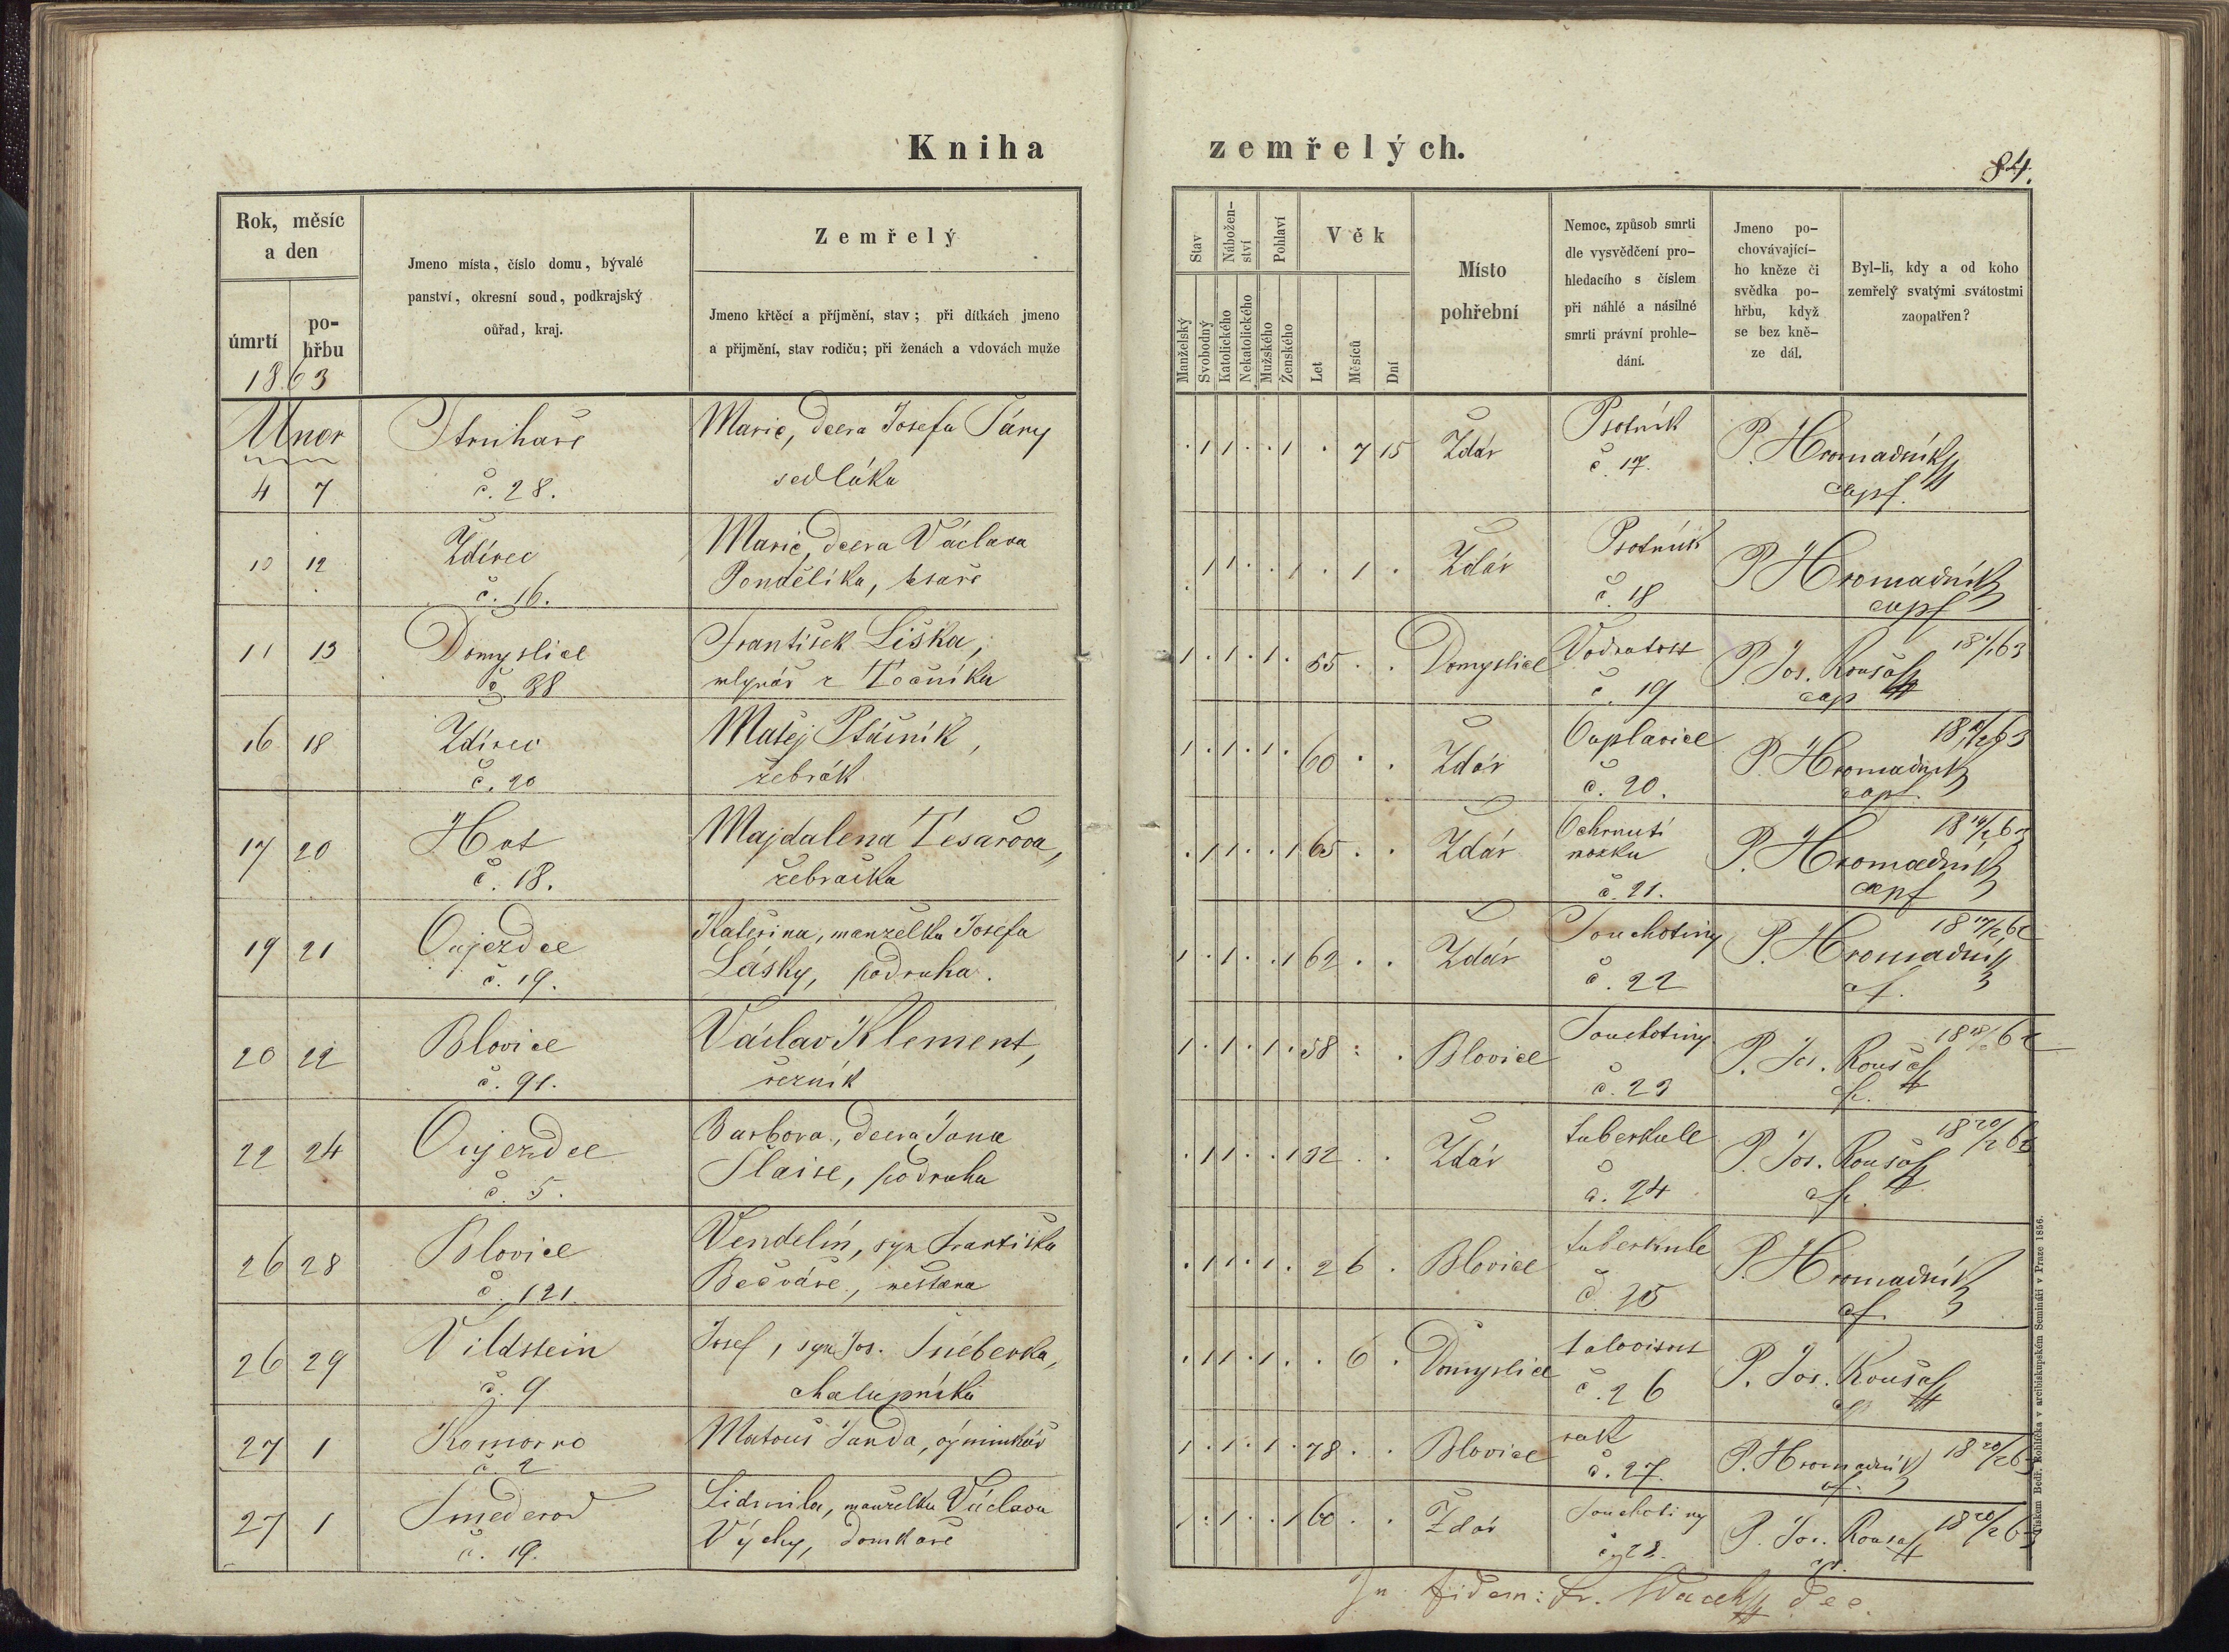 Kniha zemřelých.
84.
Rok, měsíc
a den
úmrtí
po-
hřbu
1863
Jmeno místa, číslo domu, bývalé
panství, okresní soud, podkrajský
oůřad, kraj.
Zemřelý
Jmeno křtěcí a příjmění, stav; při dítkách jmeno
a přijmění, stav rodiču; při ženách a vdovách muže
Stav
Manželský
Svobodný
Nábožen-
ství
Katolického
Nekatolického
Pohlaví
Mužského
Ženského
Věk
Let
Měsíců
Dní
Místo
pohřební
Nemoc, způsob smrti
dle vysvědčení pro-
hledacího s číslem
při náhlé a násilné
smrti právní prohle-
dání.
Jmeno po-
chovávající-
ho kněze či
svědka po-
hřbu, když
se bez kně-
ze dál.
Byl-li, kdy a od koho
zemřelý svatými svátostmi
zaopatřen?
Unor
4 7 Struhaře č. 28. Marie, dcera Josefa Táry sedláka . 1 1 . . 1 . 7 15 Ždár Psotník č. 17. P. Hromadník cap.
10 12 Ždírec č. 16. Marie, dcera Václava Pondělíka, tesaře . 1 1 . . 1 . 1 . Ždár Psotník č. 18 P. Hromadník cap
11 13 Domyslice č. 38 František Liška, mlynář z Točníka 1 . 1 . 1 . 55 . . Domyslice Vodnatost č. 19 P. Jos. Roušal cap
16 18 Ždírec č. 20 Matěj Ptáčník, žebrák 1 . 1 . 1 . 60 . . Ždár Ouplavice č. 20. P. Hromadník cap.
17 20 Hut č. 18. Majdalena Tesařova, žebračka . 1 1 . . 1 65 . . Ždár Ochrnutí mozku č. 21. P. Hromadník cap
19 21 Oujezdec č. 19. Kateřina, manželka Josefa Lásky, podruha. 1 . 1 . . 1 62 . . Ždár Souchotiny č. 22 P. Hromadník
20 22 Blovice č. 91. Václav Klement, řezník 1 . 1 . 1 . 58 . . Blovice Souchotiny č. 23 P. Jos. Roušal
22 24 Oujezdec č. 5. Barbora, dcera Jana Slaise, podruha . 1 1 . . 1 32 . . Ždár tuberkule č. 24 P. Jos. Roušal
26 28 Blovice č. 121. Vendelín, syn Františka Bečváře, měšťana . 1 1 . 1 . 2 6 . Blovice tuberkule č. 25 P. Hromadník
26 29 Vildstein č. 9 Josef, syn Jos. chalupníka . 1 1 . 1 . . 6 . Domyslice č. 26 P. Jos. Roušal
27 1 Komorno č. 2 Matouš Janda, výminkář 1 . 1 . 1 . 78 . . Blovice rak č. 27. P. Hromadník
27 1 Smederov č. 19. Lidmila, manželka Václava Výchy, domkaře 1 . 1 . . 1 60 . . Ždár Souchotiny č. 28. P. Jos. Roušal
In fidem: Fr.
Tiskem Bedř. Rohlíčka v arcibiskupském Semináři v Praze 1856.